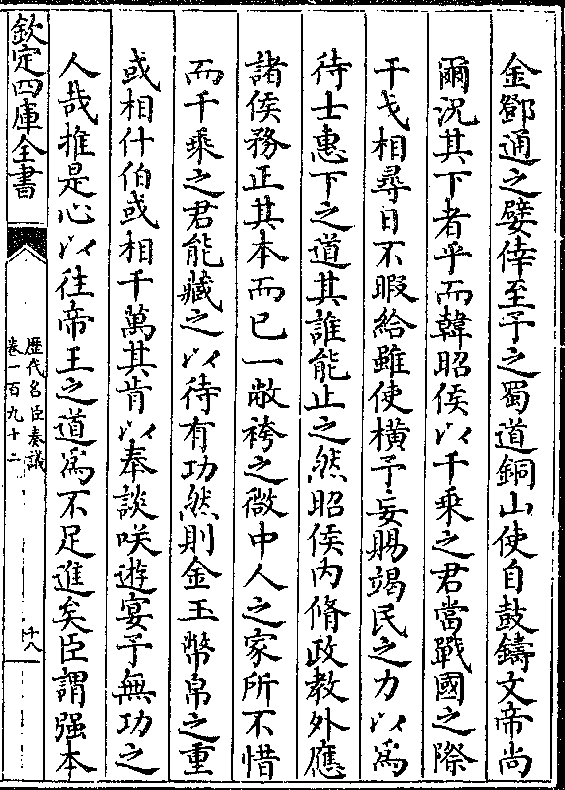 金鄧通之嬖倖至予之蜀道銅山使自鼓鑄文帝尚
爾況其下者乎而韓昭侯以千乘之君當戰國之際
干戈相尋日不暇給雖使橫予妄賜竭民之力以為
待士惠下之道其誰能止之然昭侯内脩政教外應
諸侯務正其本而已一敝袴之微中人之家所不惜
而千乘之君能藏之以待有功然則金玉幣帛之重
或相什伯或相千萬其肯以奉談咲遊宴予無功之
人哉推是心以往帝王之道為不足進矣臣謂强本
欽定四庫全書
歷代名臣奏議
卷一百九十二
十八